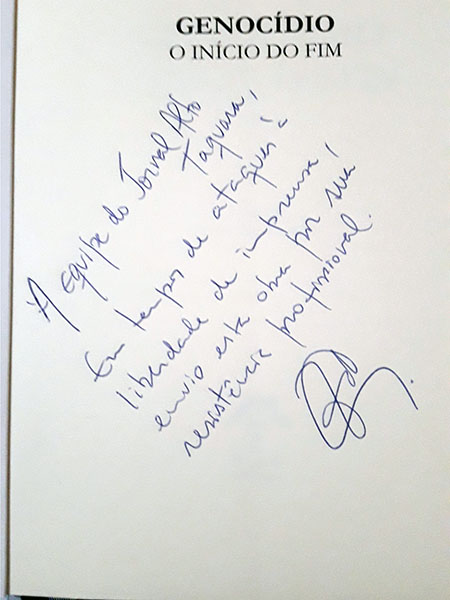 GENOCÍDIO
O INÍCIO DO FIM
A equipe do Jornal Alto
Taquara,
Em tempos de ataques à
liberdade de imprensa,
envio esta obra por sua
resistência profissional.